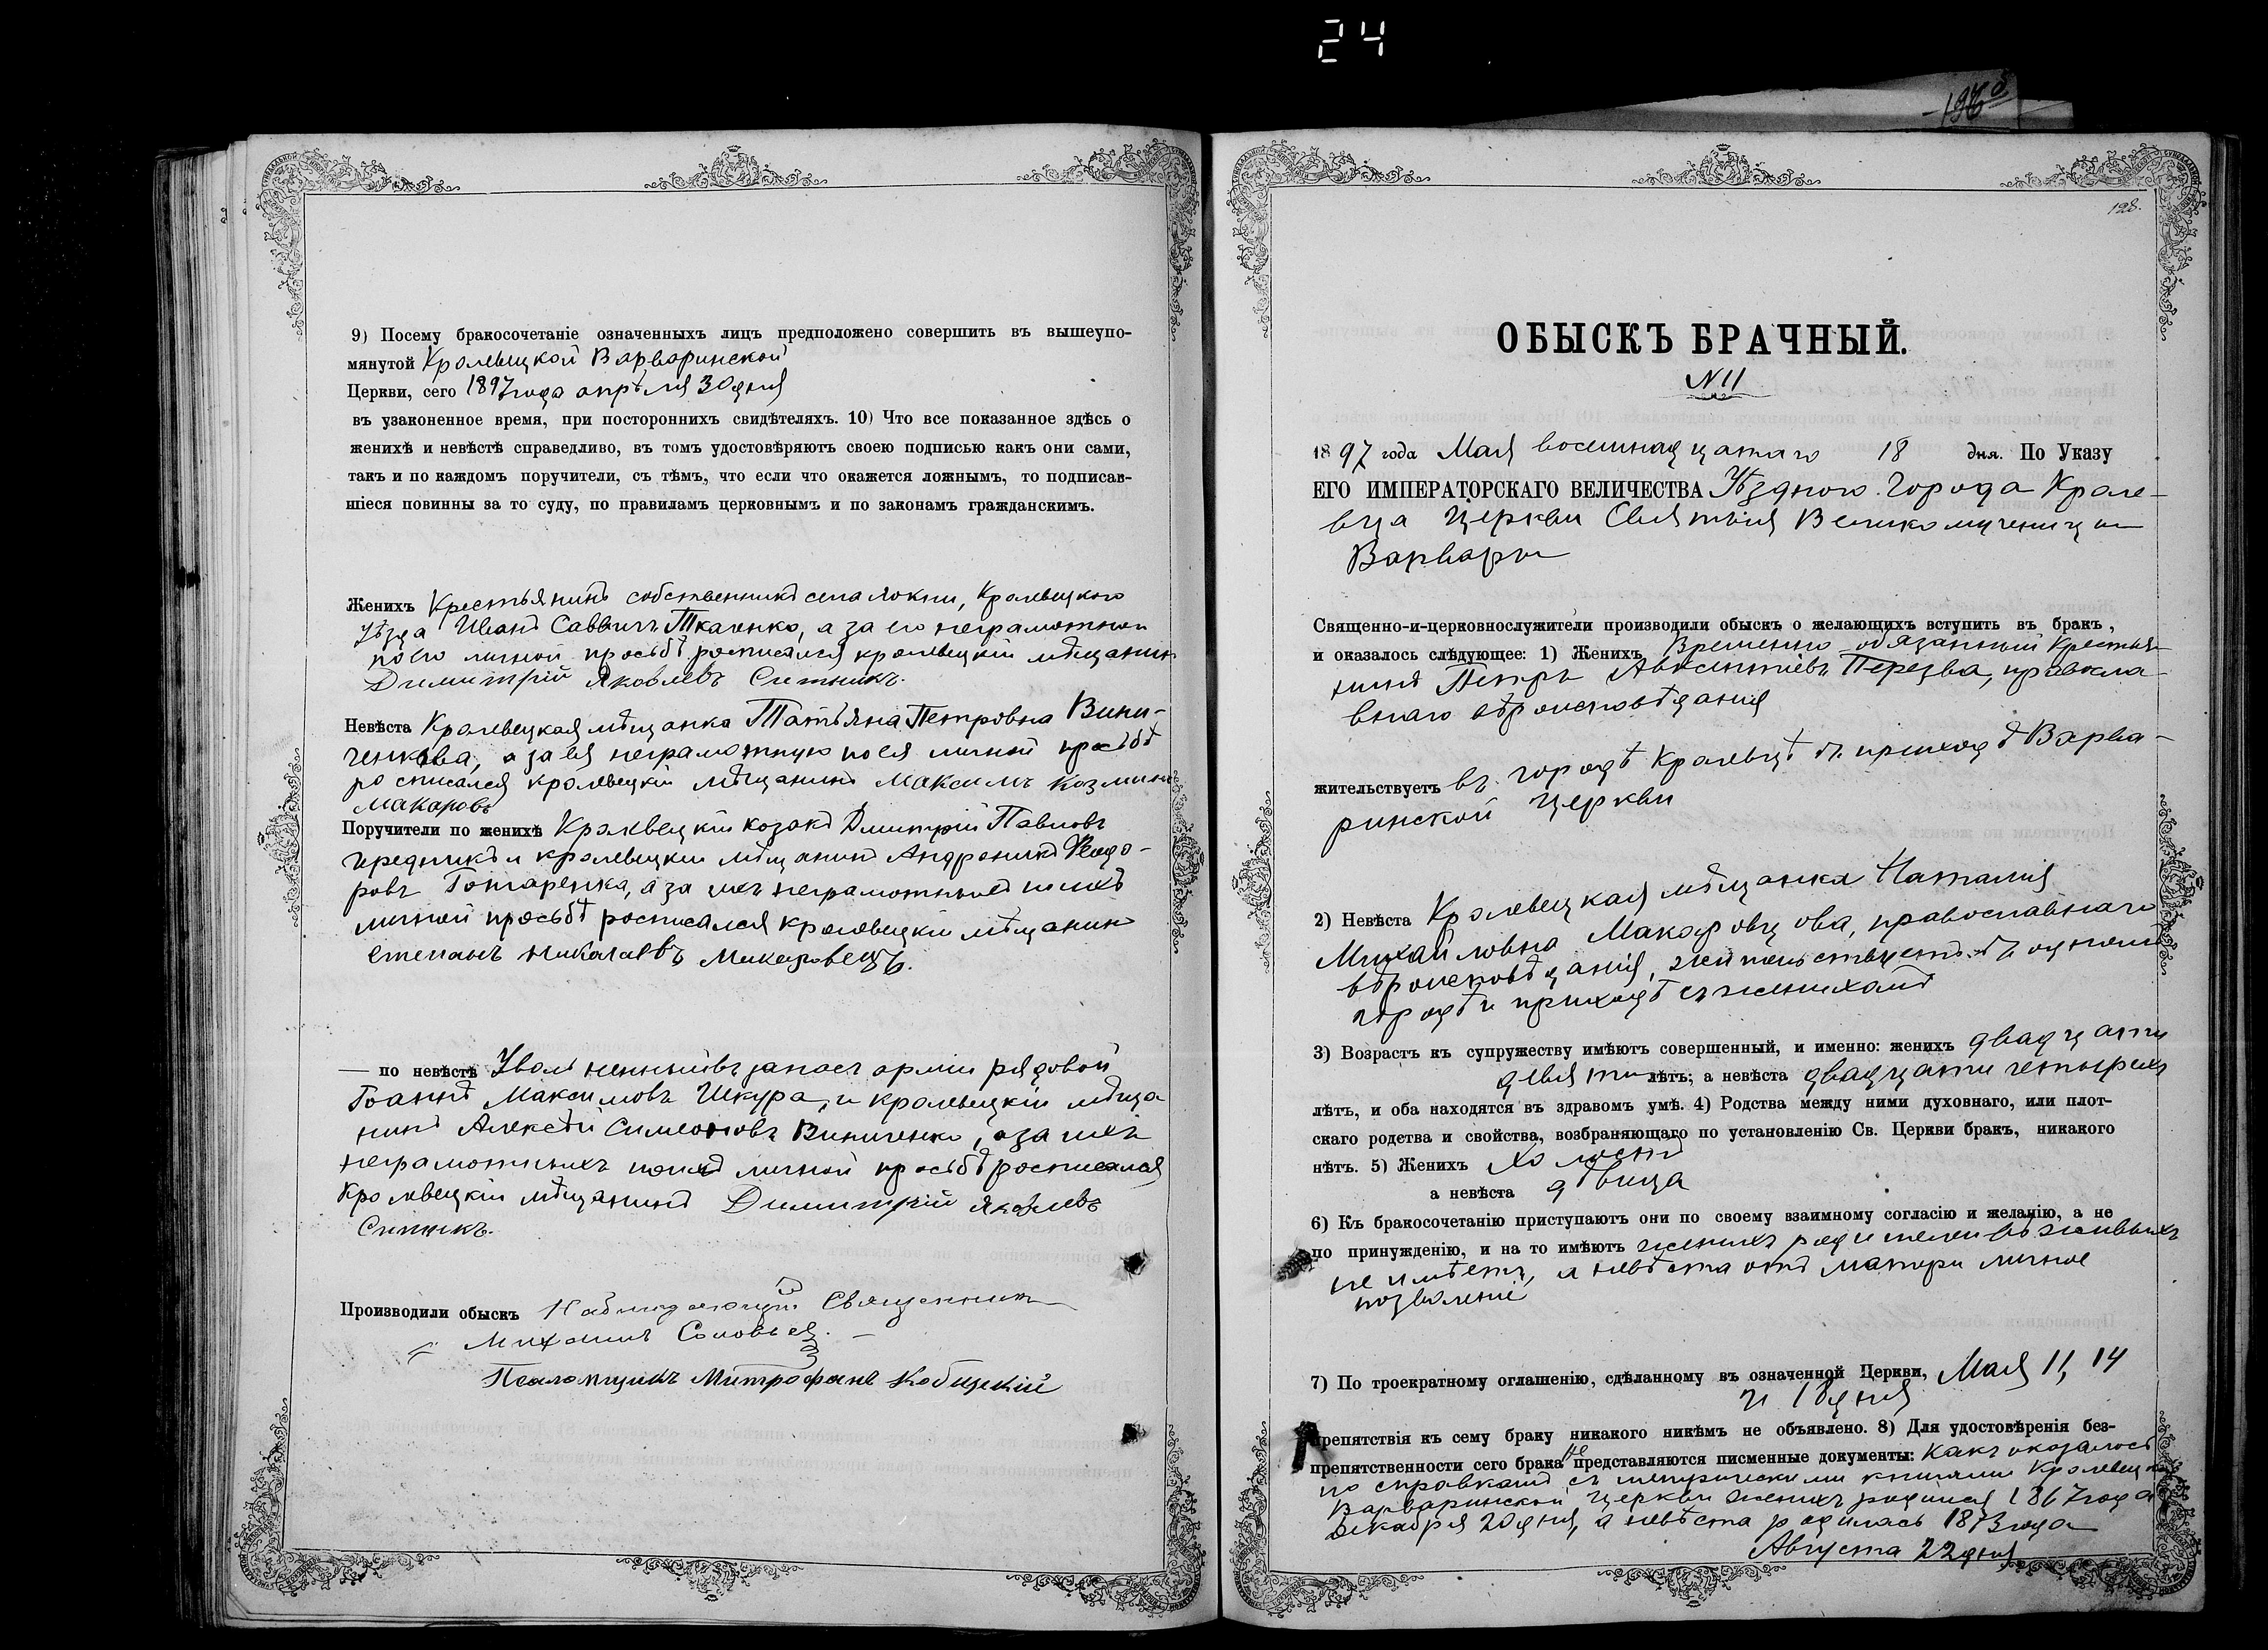 24
128.
9) Посему бракосочетаніе означенныхъ лицъ предположено совершить въ вышеупо-
мянутой Кролевецкой Варваринской
Церкви, сего 1897 года апрѣля 30 дня
въ узаконенное время, при постороннихъ свидѣтеляхъ. 10) Что все показанное здѣсь о
женихѣ и невѣстѣ справедливо, въ томъ удостовѣряютъ своею подписью какъ они сами,
такъ и по каждомъ поручители, съ тѣмъ, что если что окажется ложнымъ, то подписав-
шіеся повинны за то суду, по правиламъ церковнымъ и по законамъ гражданскимъ.
Женихъ Крестьянинъ собственникъ села Локни, Кролевецкого
уѣзда Иванъ Саввичъ Ткаченко, а за его неграмотного
по его личной просьбѣ росписался кролевецкій мѣщанин
Димитрій Яковлевъ Ситникъ.
Невѣста Кролевецкая мѣщанка Татьяна Петровна Вини-
ченкова, а за ея неграмотную по ея личной просьбѣ
росписался кролевецкій мѣщанинъ Максимъ Козмин
Макаровъ
Поручители по женихѣ Кролевецкій козакъ Дмитрій Павловъ
Чередникъ и кролевецкій мѣщанинъ Андроникъ Ѳеодо-
ровъ Гончаренко, а за ихъ неграмотныхъ по ихъ
личной просьбѣ росписался кролевецкій мѣщанин
Степанъ Николаевъ Макаровецъ.
— по невѣстѣ Уволенный въ запасъ арміи рядовой
Іоаннъ Максимовъ Шкура, и кролевецкій мѣща
нинъ Алексѣй Симеоновъ Виниченко, а за ихъ
неграмотныхъ по ихъ личной просьбѣ росписался
Кролевецкій мѣщанинъ Димитрій Яковлевъ
Ситникъ.
Производили обыскъ Наблюдающій Священникъ
Михаилъ Соловьев.
Псаломщикъ Митрофанъ Кобицкій
ОБЫСКЪ БРАЧНЫЙ.
N 11
1897 года Мая восемнадцатаго 18 дня. По Указу
ЕГО ИМПЕРАТОРСКАГО ВЕЛИЧЕСТВА Уѣздного города Кроле-
вца Церкви Святыя Великомученицы
Варвары
Священно-и-церковнослужители производили обыскъ о желающихъ вступить въ бракъ,
и оказалось слѣдующее: 1) Женихъ Временно-обязанный Крестья-
нинъ Петръ Авксентіевъ Перезва, правосла-
внаго вѣроисповѣданія
жительствуетъ въ городѣ Кролевцѣ въ приходѣ Варва-
ринской церкви
2) Невѣста Кролевецкая мѣщанка Наталія
Михайловна Макаровцова, православнаго
вѣроисповѣданія, жительствуетъ въ одномъ
городѣ и приходѣ съ женихомъ
3) Возрастъ къ супружеству имѣютъ совершенный, и именно: женихъ двадцати
девяти лѣтъ; а невѣста двадцати четырехъ
лѣтъ, и оба находятся въ здравомъ умѣ. 4) Родства между ними духовнаго, или плот-
скаго родства и свойства, возбраняющаго по установленію Св. Церкви бракъ, никакого
нѣтъ. 5) Женихъ холостъ
а невѣста дѣвица
6) Къ бракосочетанію приступаютъ они по своему взаимному согласію и желанію, а не
по принужденію, и на то имѣютъ женихъ родителей въ живыхъ
не имѣетъ, а невѣста отъ матери личное
позволеніе
7) По троекратному оглашенію, сдѣланному въ означенной Церкви, Мая 11, 14
и 18 дня
препятствія къ сему браку никакого никѣмъ не объявлено. 8) Для удостовѣренія без-
препятственности сего брака не представляются писменные документы: какъ оказалось
по справкамъ съ метрическими книгами Кролевецкой
Варваринской церкви женихъ родился 1867 года
Декабря 20 дня, а невѣста родилась 1873 года
Августа 22 дня